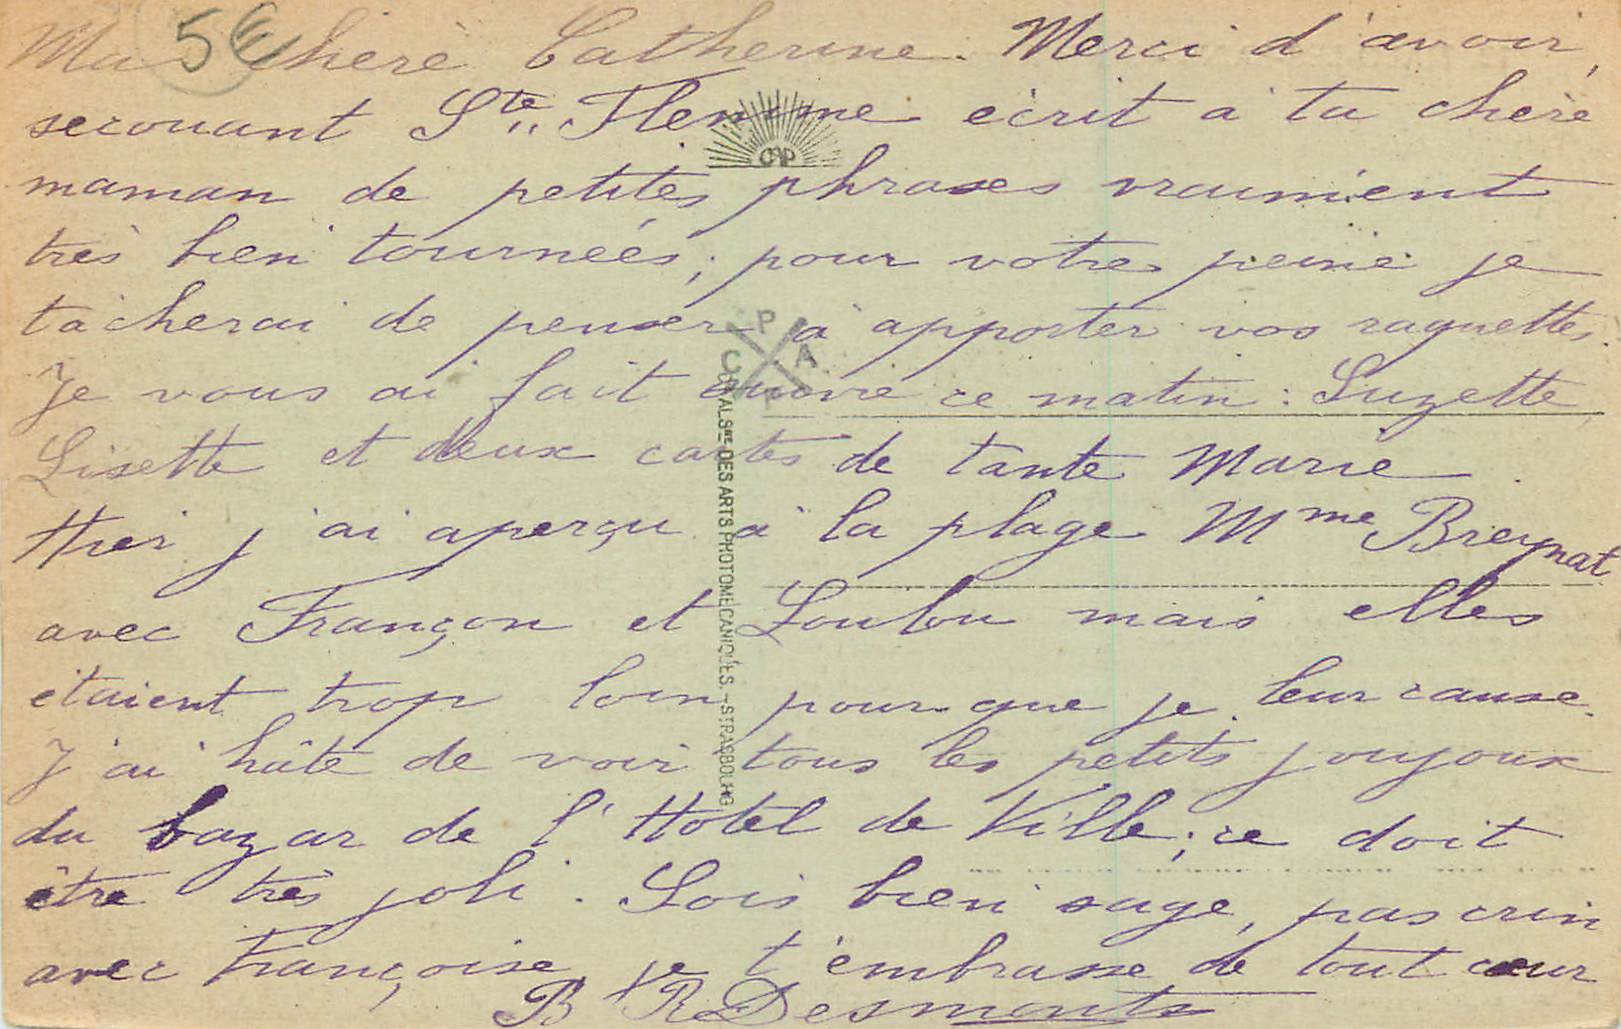 Ma chère Catherine. Merci d'avoir,
secouant Ste Flemme écrit à ta chère
maman de petites phrases vraiment
très bien tournées; pour votre peine je
tâcherai de penser à apporter vos raquettes.
Je vous ai fait suivre ce matin : Suzette,
Lisette et deux cartes de tante Marie.
Hier j'ai aperçu à la plage Mme Breynat
avec Françon et Loulou mais elles
étaient trop loin pour que je leur cause.
J'ai hâte de voir tous les petits joujoux
du bazar de l'Hôtel de Ville; ce doit
être très joli. Sois bien sage, pas crin
avec Françoise, je t'embrasse de tout cœur
B R Desmonts
5€
CAP
C A P
ALSNE DES ARTS PHOTOMECANIQUES. - STRASBOURG